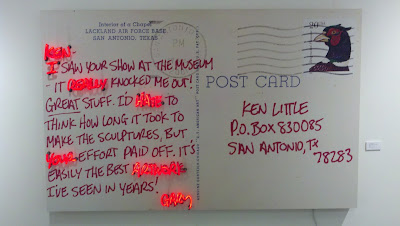 Interior of a Chapel
LACKLAND AIR FORCE BASE
SAN ANTONIO, TEXAS
PM
KEN-
I SAW YOUR SHOW AT THE MUSEUM
-IT REALLY KNOCKED ME OUT!
GREAT STUFF. I'D HATE TO
THINK HOW LONG IT TOOK TO
MAKE THE SCULPTURES, BUT
YOUR EFFORT PAID OFF. IT'S
EASILY THE BEST ARTWORK
I'VE SEEN IN YEARS!
POST CARD
KEN LITTLE
P.O. BOX 830085
SAN ANTONIO, TX
78283